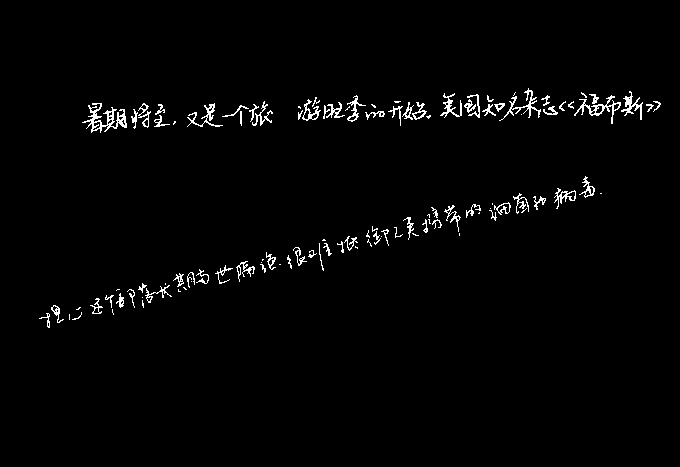 暑期将至,又是一个旅 游旺季的开始.美国知名杂志<<福布斯>>
担心这个部落长期与世隔绝.很难抵御人员携带的细菌和病毒.